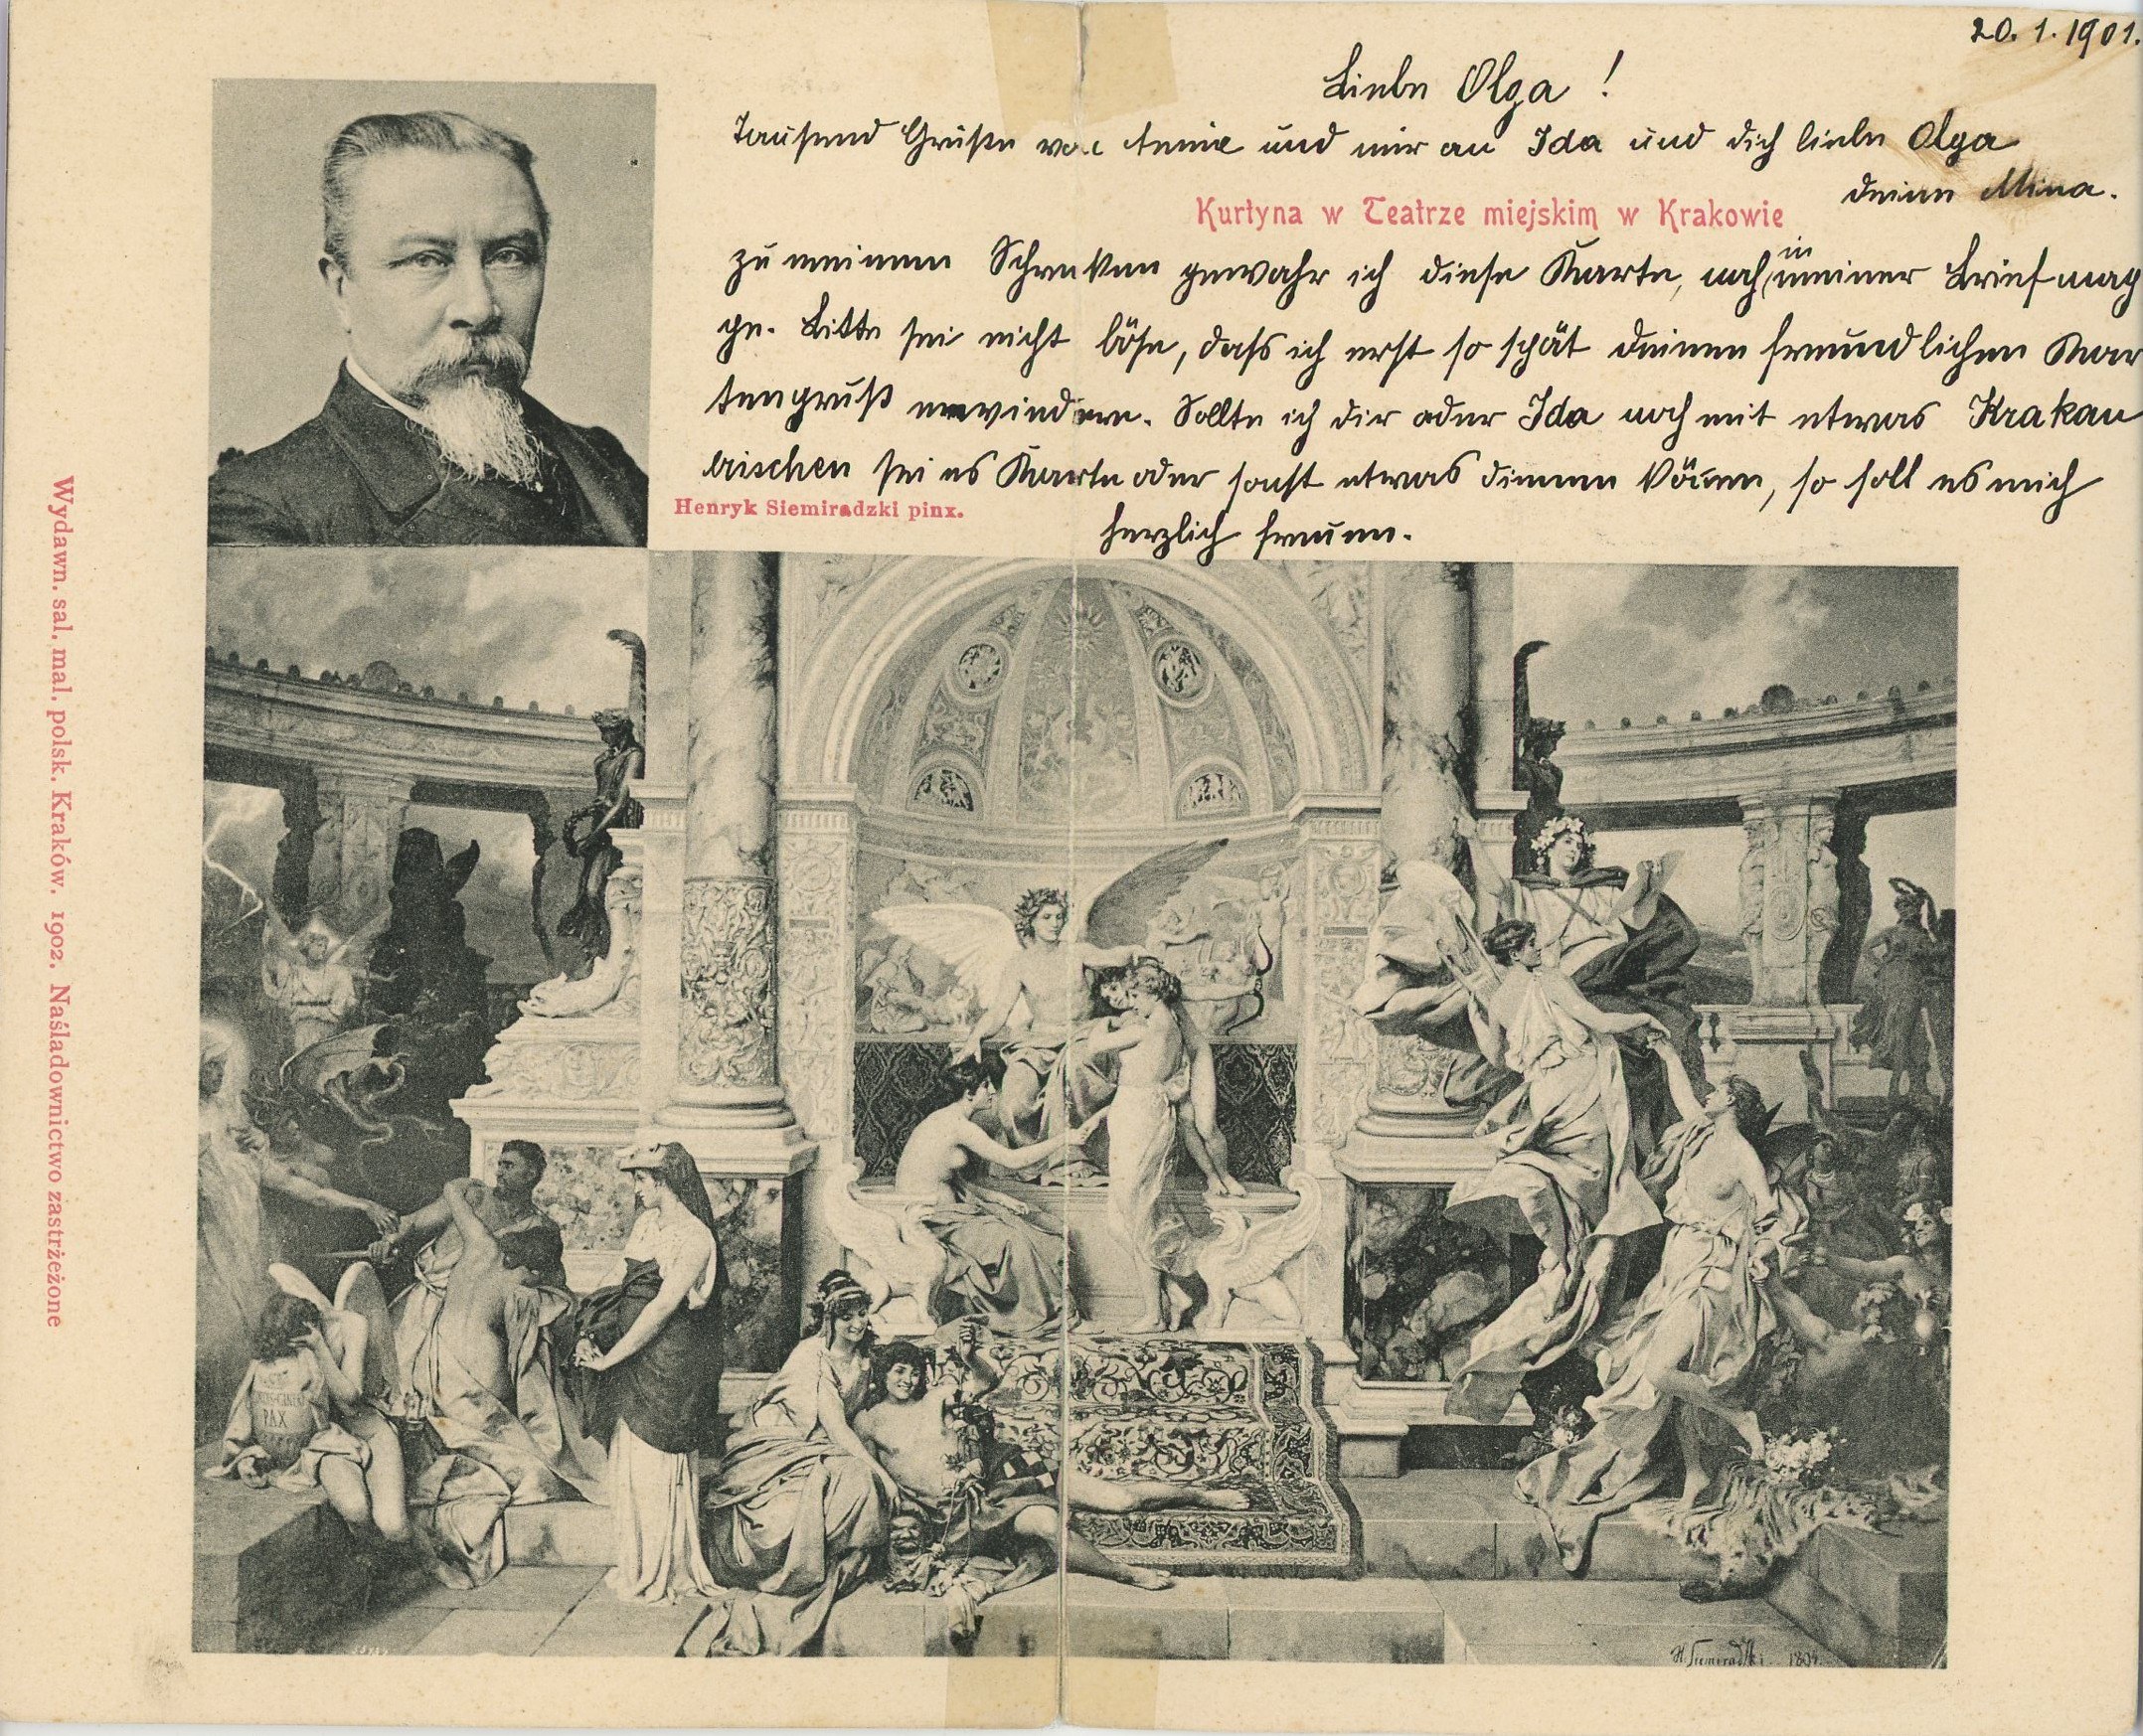 20. 1. 1901.
Liebe Olga !
Tausend Grüße von Annie und mir an Ida und dich liebe Olga
deine Mina.
Kurtyna w Teatrze miejskim w Krakowie
zu meinem Schreken gewahr ich diese Karte, noch in meiner Briefmap
pe. Bitte sei nicht böse, dass ich erst so spät deinen freundlichen Kar
tengruß erwiedere. Sollte ich dir oder Ida noch mit etwas Krakau
erischen sei es Karte oder sonst etwas dienen können, so soll es mich
herzlich freuen.
Henryk Siemiradzki pinx.
Wydawn. sal. mal. polsk. Kraków. 1902. Naśladownictwo zastrzeżone
PAX
H. Siemiradzki